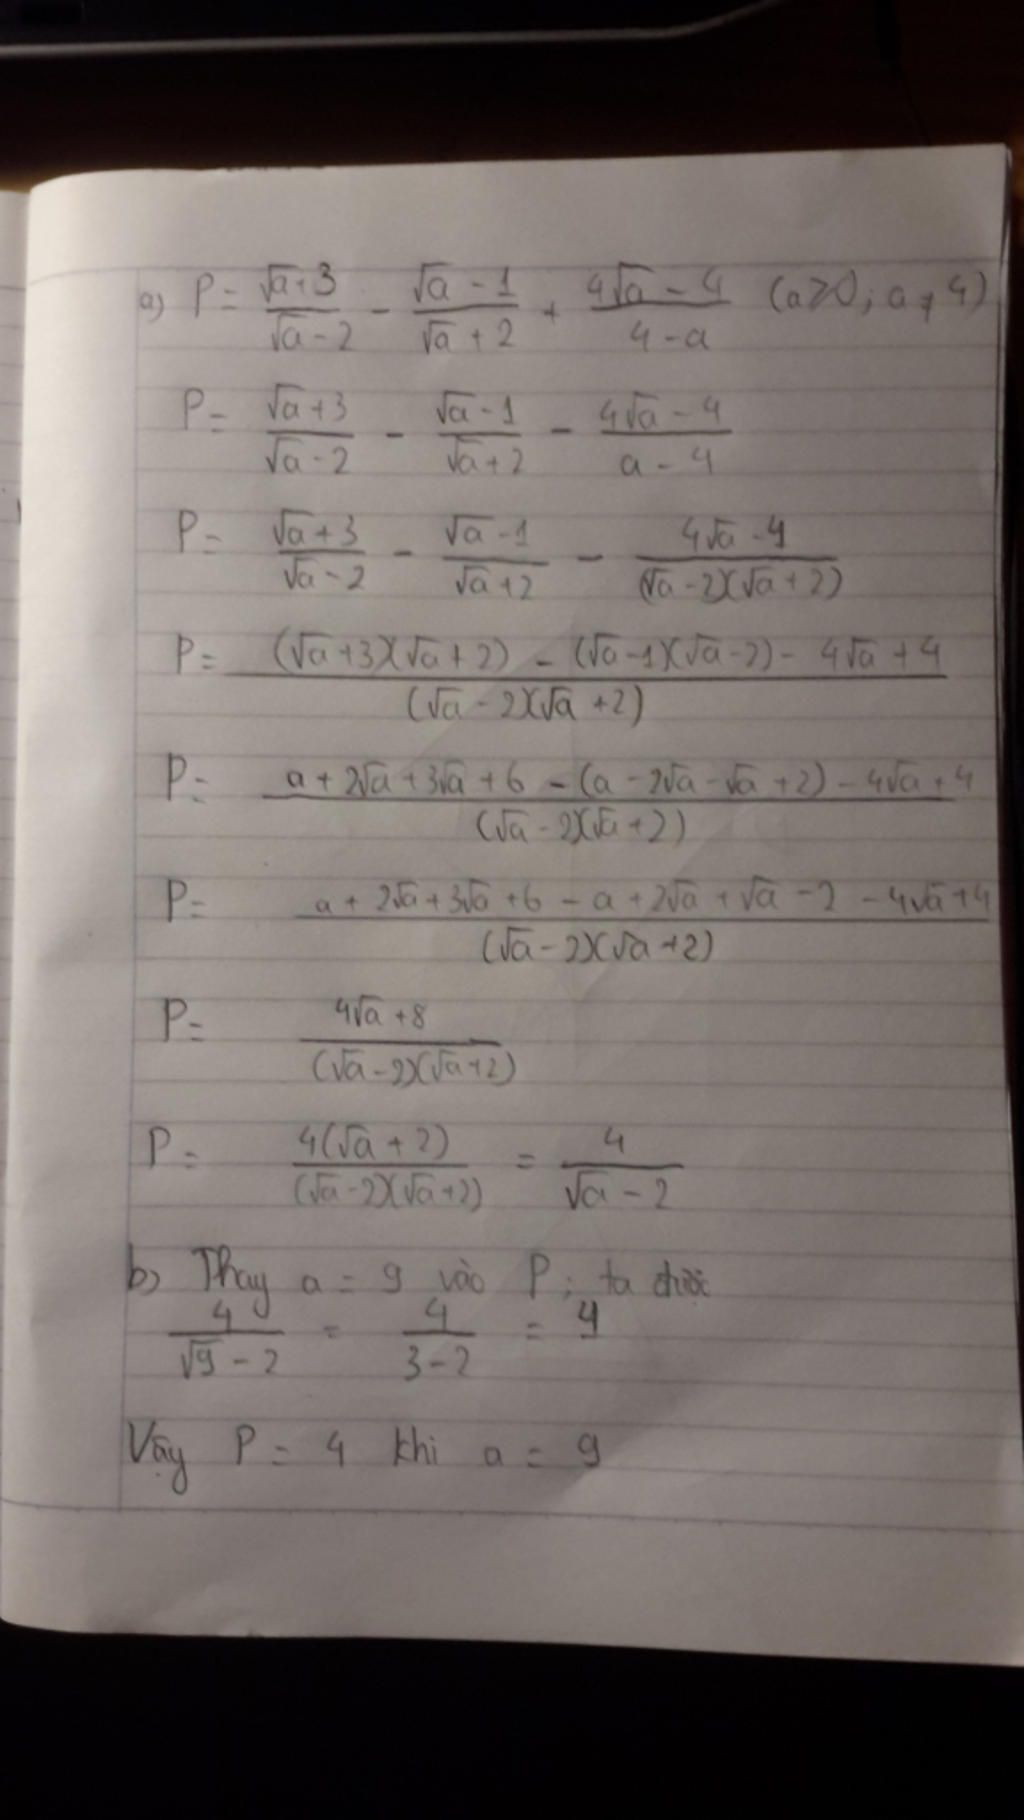 a) P = (√a+3)/(√a-2) - (√a-1)/(√a+2) + (4√a-4)/(4-a) (a≥0; a≠4)
P = (√a+3)/(√a-2) - (√a-1)/(√a+2) - (4√a-4)/(a-4)
P = (√a+3)/(√a-2) - (√a-1)/(√a+2) - (4√a-4)/((√a-2)(√a+2))
P = ((√a+3)(√a+2) - (√a-1)(√a-2) - 4√a+4)/((√a-2)(√a+2))
P = (a+2√a+3√a+6 - (a-2√a-√a+2) - 4√a+4)/((√a-2)(√a+2))
P = (a+2√a+3√a+6-a+2√a+√a-2-4√a+4)/((√a-2)(√a+2))
P = (4√a+8)/((√a-2)(√a+2))
P = (4(√a+2))/((√a-2)(√a+2)) = 4/(√a-2)
b) Thay a = 9 vào P; ta được
4/(√9-2) = 4/(3-2) = 4
Vậy P = 4 khi a = 9